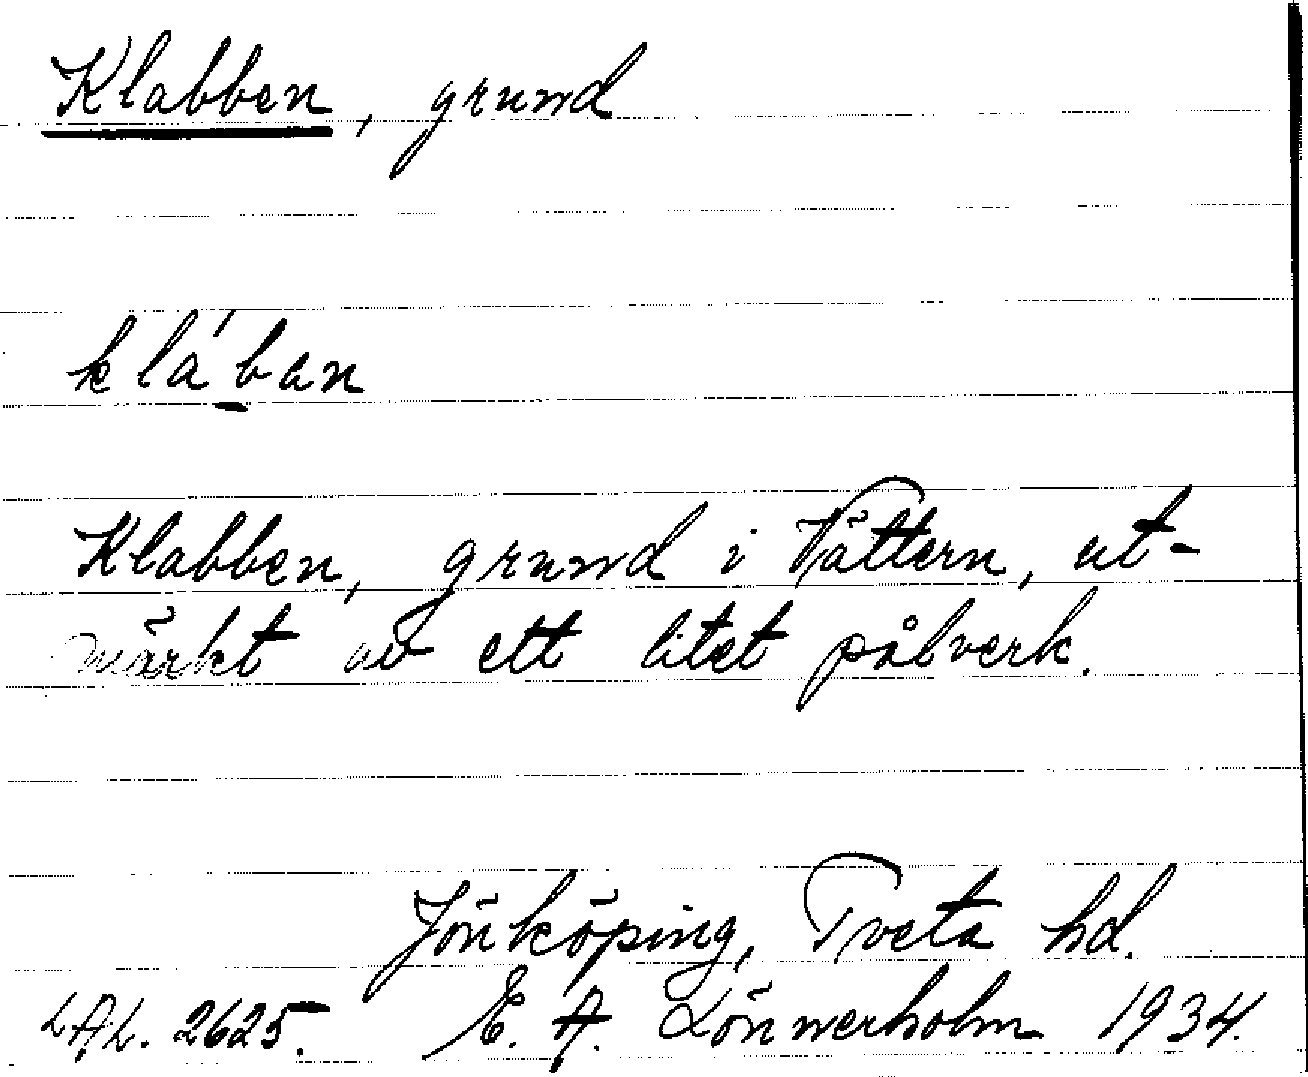 Klabben, grund
kla´ban
Klabben, grund i Vättern, ut-
märkt av ett litet pålverk.
Jönköping, Tveta hd.
LAL. 2625. E. A. Lönnerholm 1934.